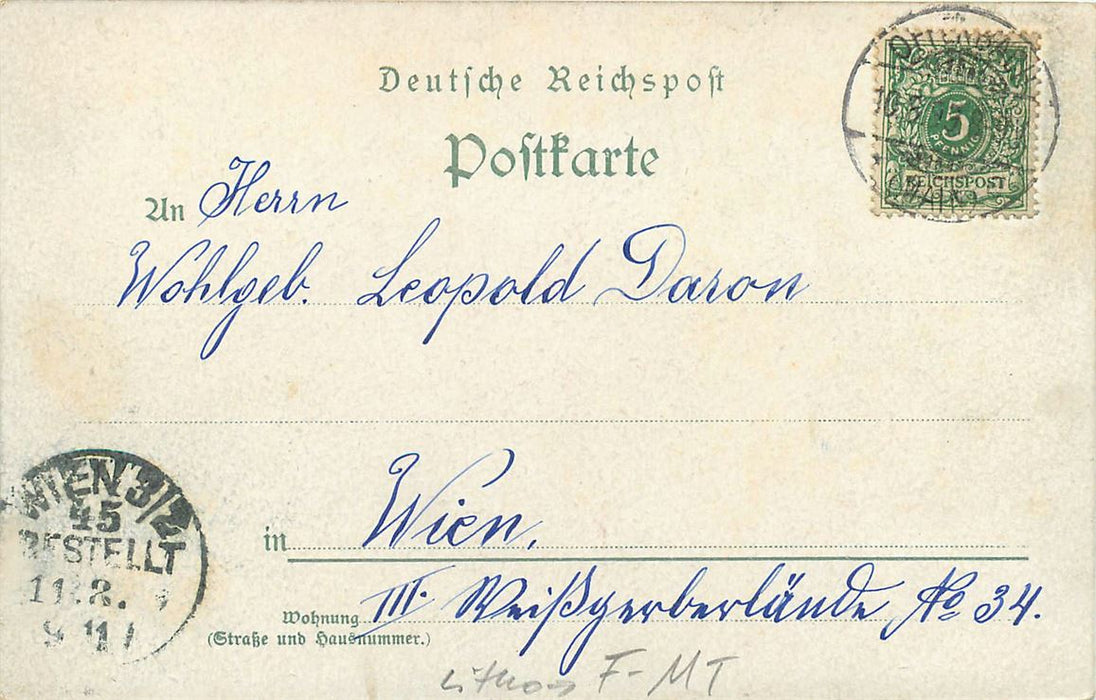 Deutsche Reichspost
Postkarte
5
PFENNIG
REICHSPOST
An Herrn
Wohlgeb. Leopold Daron
in Wien,
Wohnung III. Weißgerberlände No 34.
(Straße und Hausnummer.)
WIEN 3/2
45
BESTELLT
11.8.
F-MT